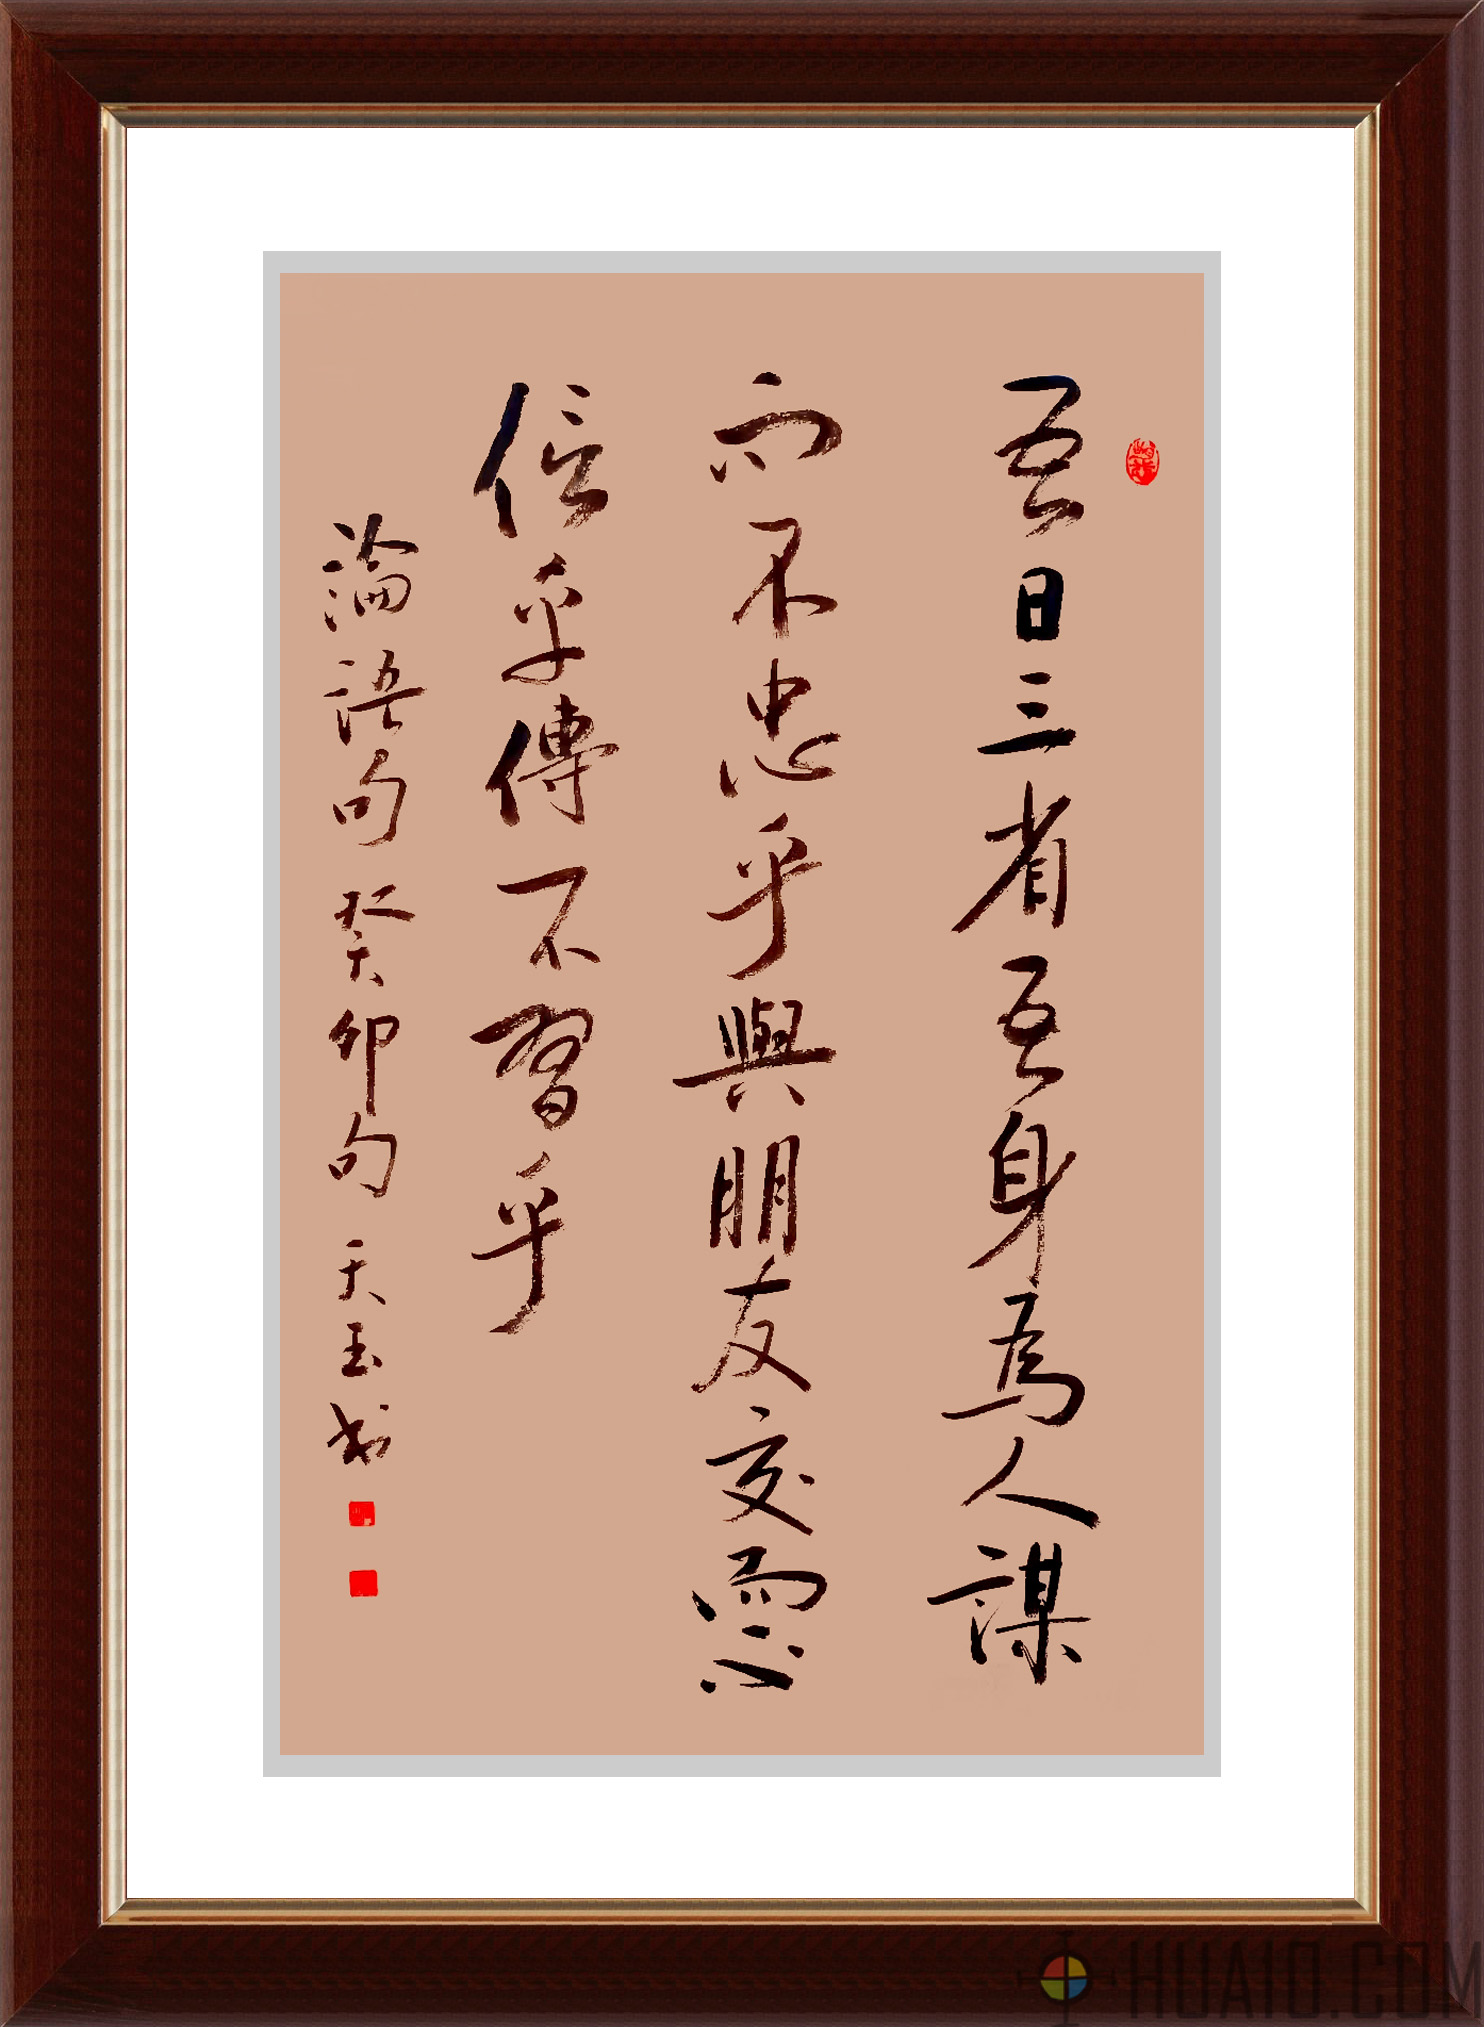 吾日三省吾身為人謀
而不忠乎與朋友交而不
信乎傳不習乎
論語句 癸卯句 天玉书
HUA10.COM